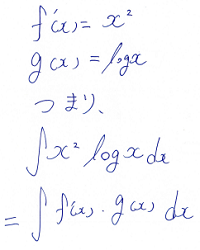 f'(x) = x²
g(x) = log x
つまり、
∫ x² log x dx
= ∫ f'(x) · g(x) dx